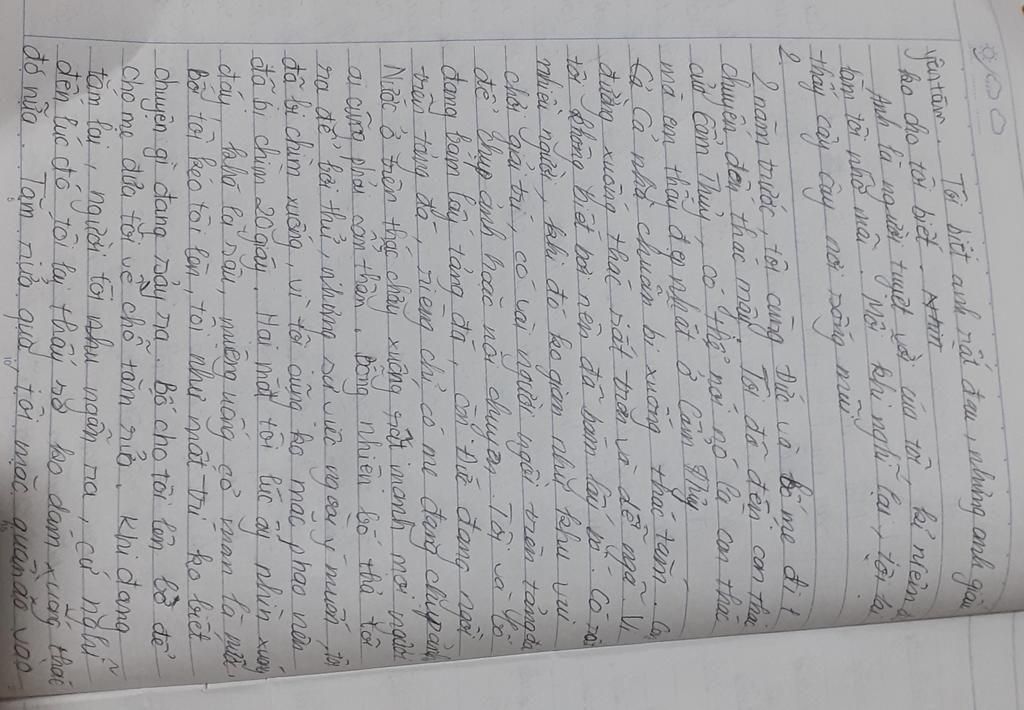 Tôi biết anh rất đau, nhưng anh giấu
ko cho tôi biết.
yên tâm.
Anh là người tuyệt vời của tôi, kỉ niệm
làm tôi nhớ mãi. Mỗi khi nghĩ lại, tôi lại
thấy cay cay nơi sống mũi.
2
2 năm trước, tôi cùng Đức và bố mẹ đi
chuyến đến thác mây. Tôi đã đến con thác
của Cẩm Thủy, có thể nói nó là con thác
mà em thấy đẹp nhất ở Cẩm Thủy
Cả nhà chuẩn bị xuống thác tắm.
đường xuống thác rất trơn và dễ ngã. Vì
tôi không biết bơi nên đã bám lấy bố. Có rất
nhiều người, khi đó ko gian như khu vui
chơi giải trí, có vài người ngồi trên tảng đá
để chụp ảnh hoặc nói chuyện. Tôi và bố
đang bám lấy tảng đá, còn Đức đang ngồi
trên tảng đá, riêng chỉ có mẹ đang chụp ảnh
Nước ở trên thác chảy xuống rất mạnh nơi người
ai cũng phải cẩn thận. Bỗng nhiên bố thả tôi
ra để bơi thử, nhưng sự việc ngoài ý muốn, tôi
đã bị chìm xuống, vì tôi cũng ko mặc phao nên
đã bị chìm 20 giây. Hai mắt tôi lúc ấy nhìn xuống
đáy, khá là sâu, miệng uống cỏ mần là nước,
Bố tôi kéo tôi lên, tôi như mất trí ko biết
chuyện gì đang xảy ra. Bố cho tôi lên bờ để
cho mẹ đưa tôi về chỗ tắm rửa. Khi đang
tắm lại, người tôi như ngẩn ra, cứ nghĩ
đến lúc đó tôi lại thấy sợ ko dám xuống thác
đó nữa. Tắm rửa qua, tôi mặc quần áo vào